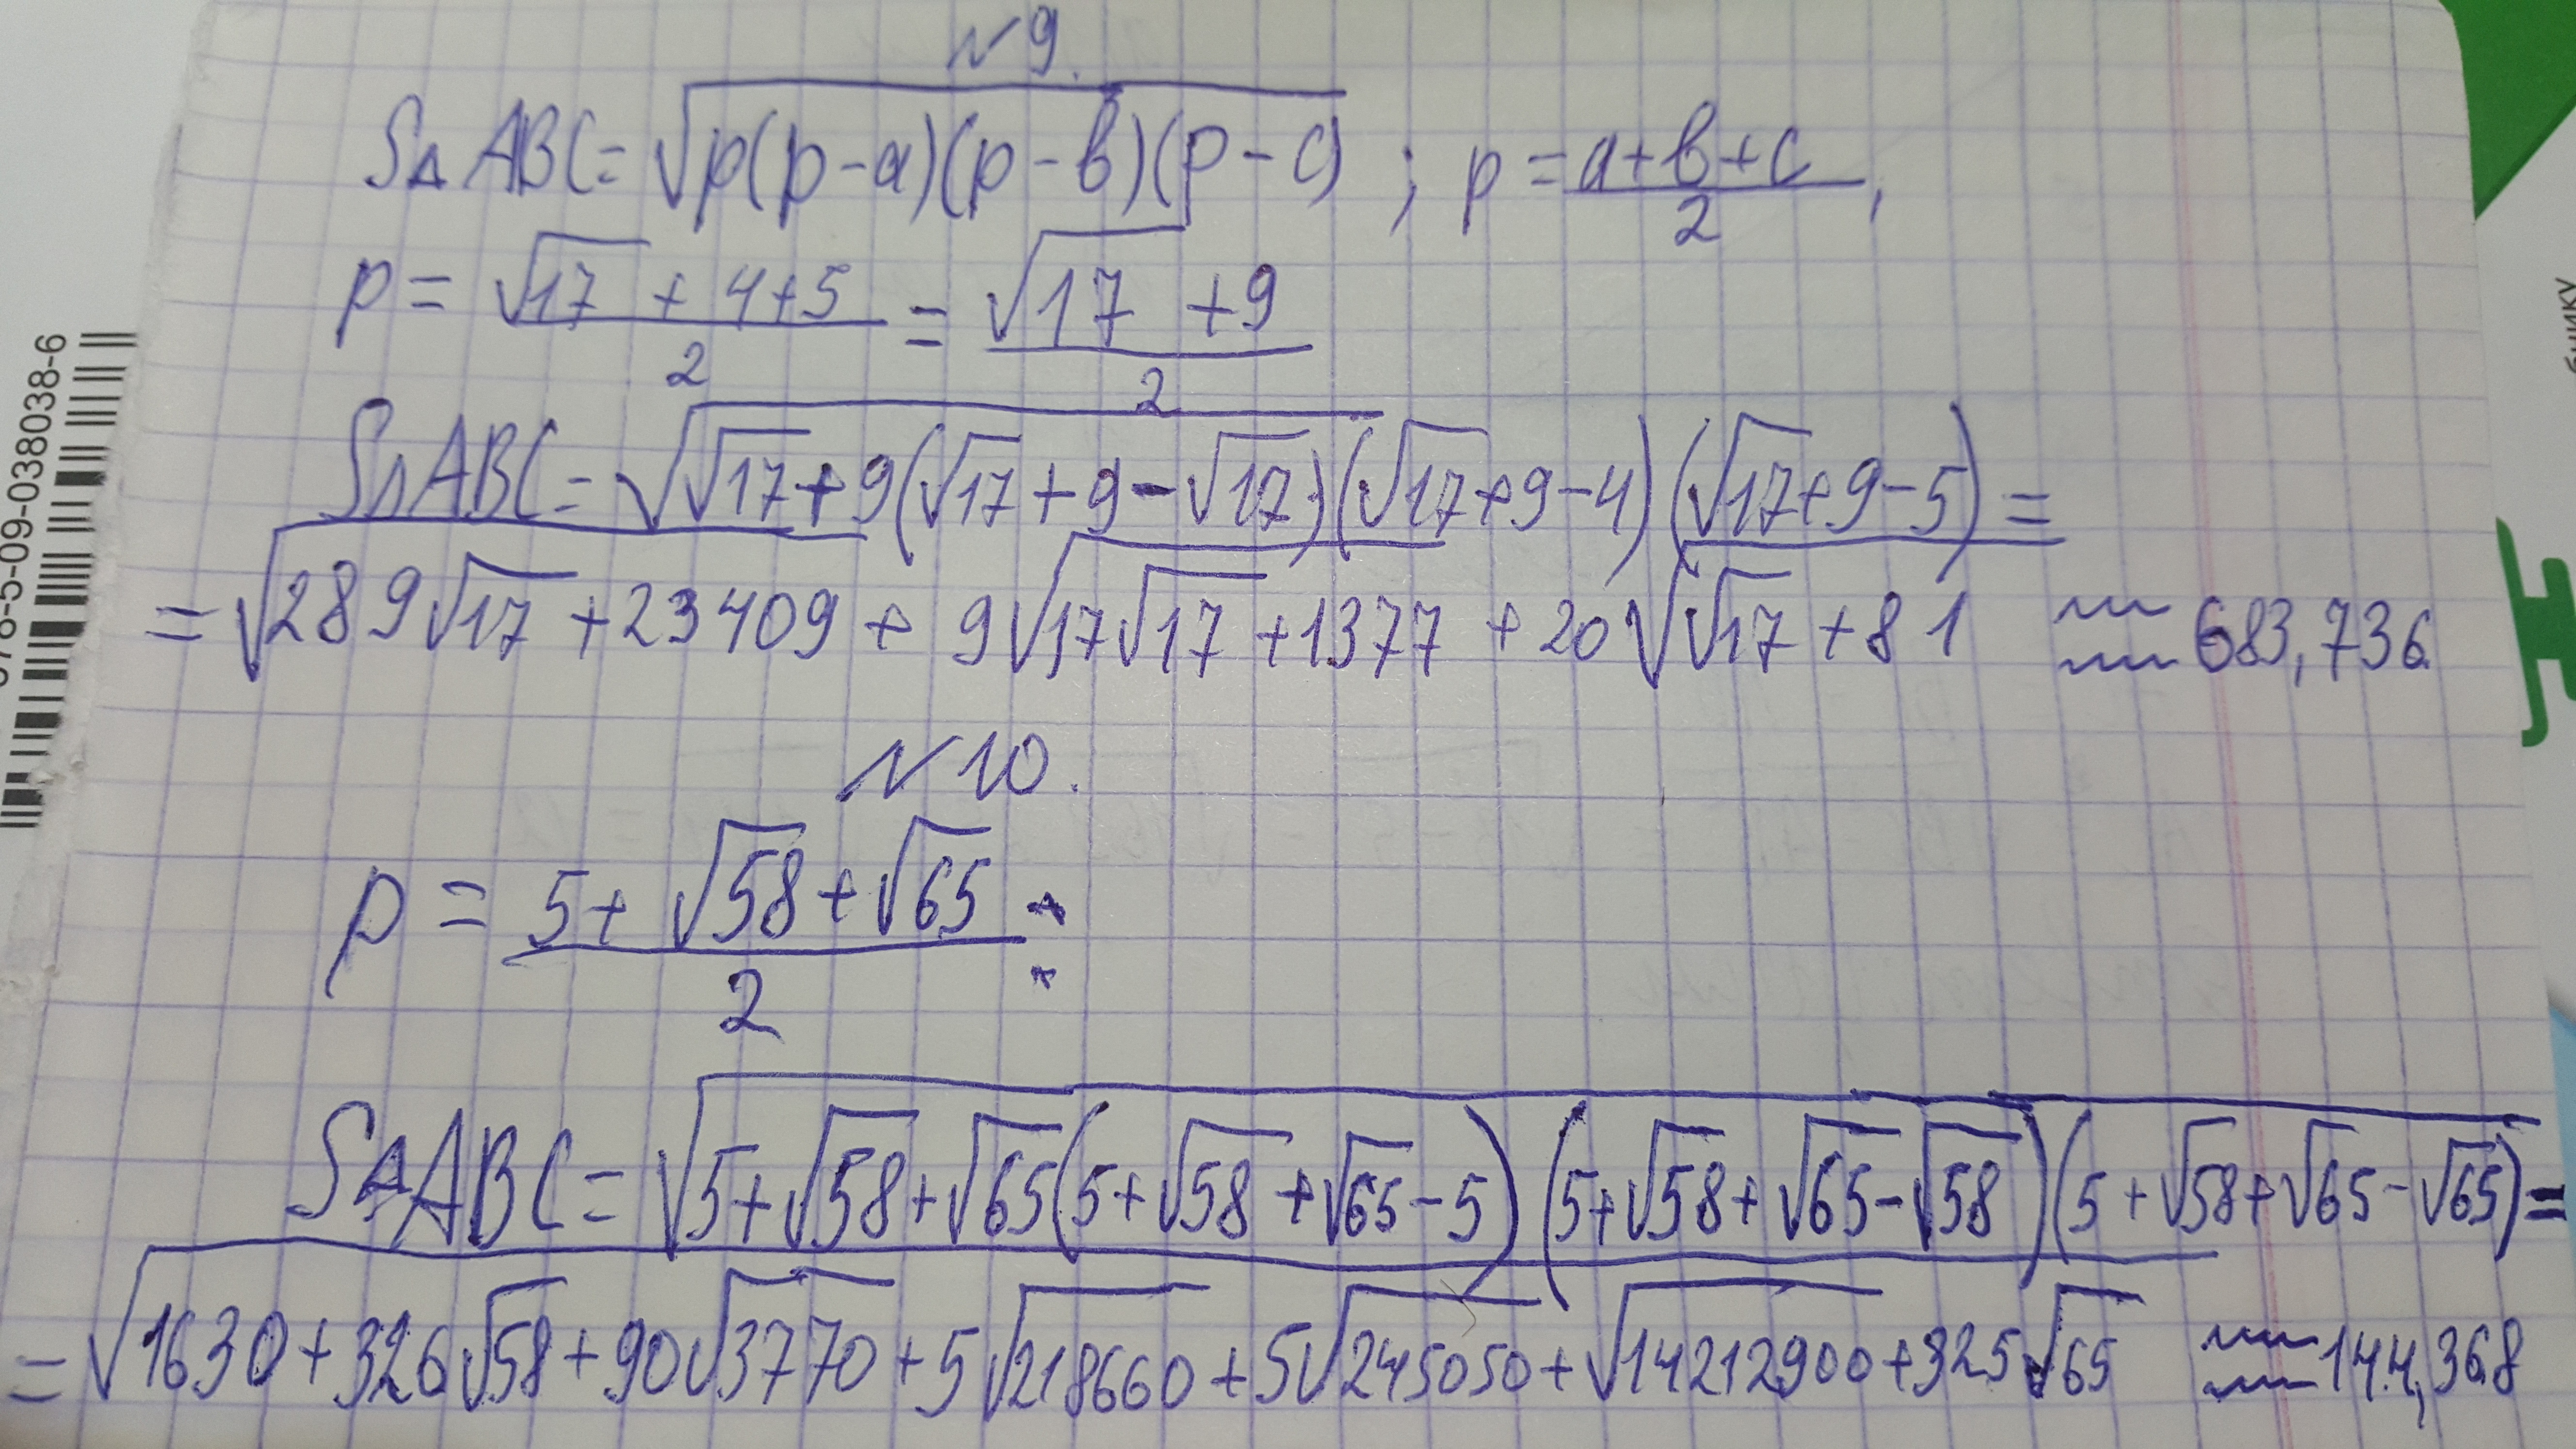 №9.
S△ABC = √(p(p-a)(p-b)(p-c)) ; p = (a+b+c)/2,
p = (√17 + 4+5)/2 = (√17 + 9)/2
S△ABC = √(√17+9(√17+9-√17)(√17+9-4)(√17+9-5)) =
= √(289√17 + 23409) + 9√(17√17 + 1377) + 20√(√17 + 81) ≈ 683,736
№10.
p = (5 + √58 + √65)/2 :
S△ABC = √(5+√58+√65(5+√58+√65-5)(5+√58+√65-√58)(5+√58+√65-√65)) =
= √(1630+326√58+90√3770+5√218660+5√245050+√14212900+325√65) ≈ 144,368
978-5-09-038038-6